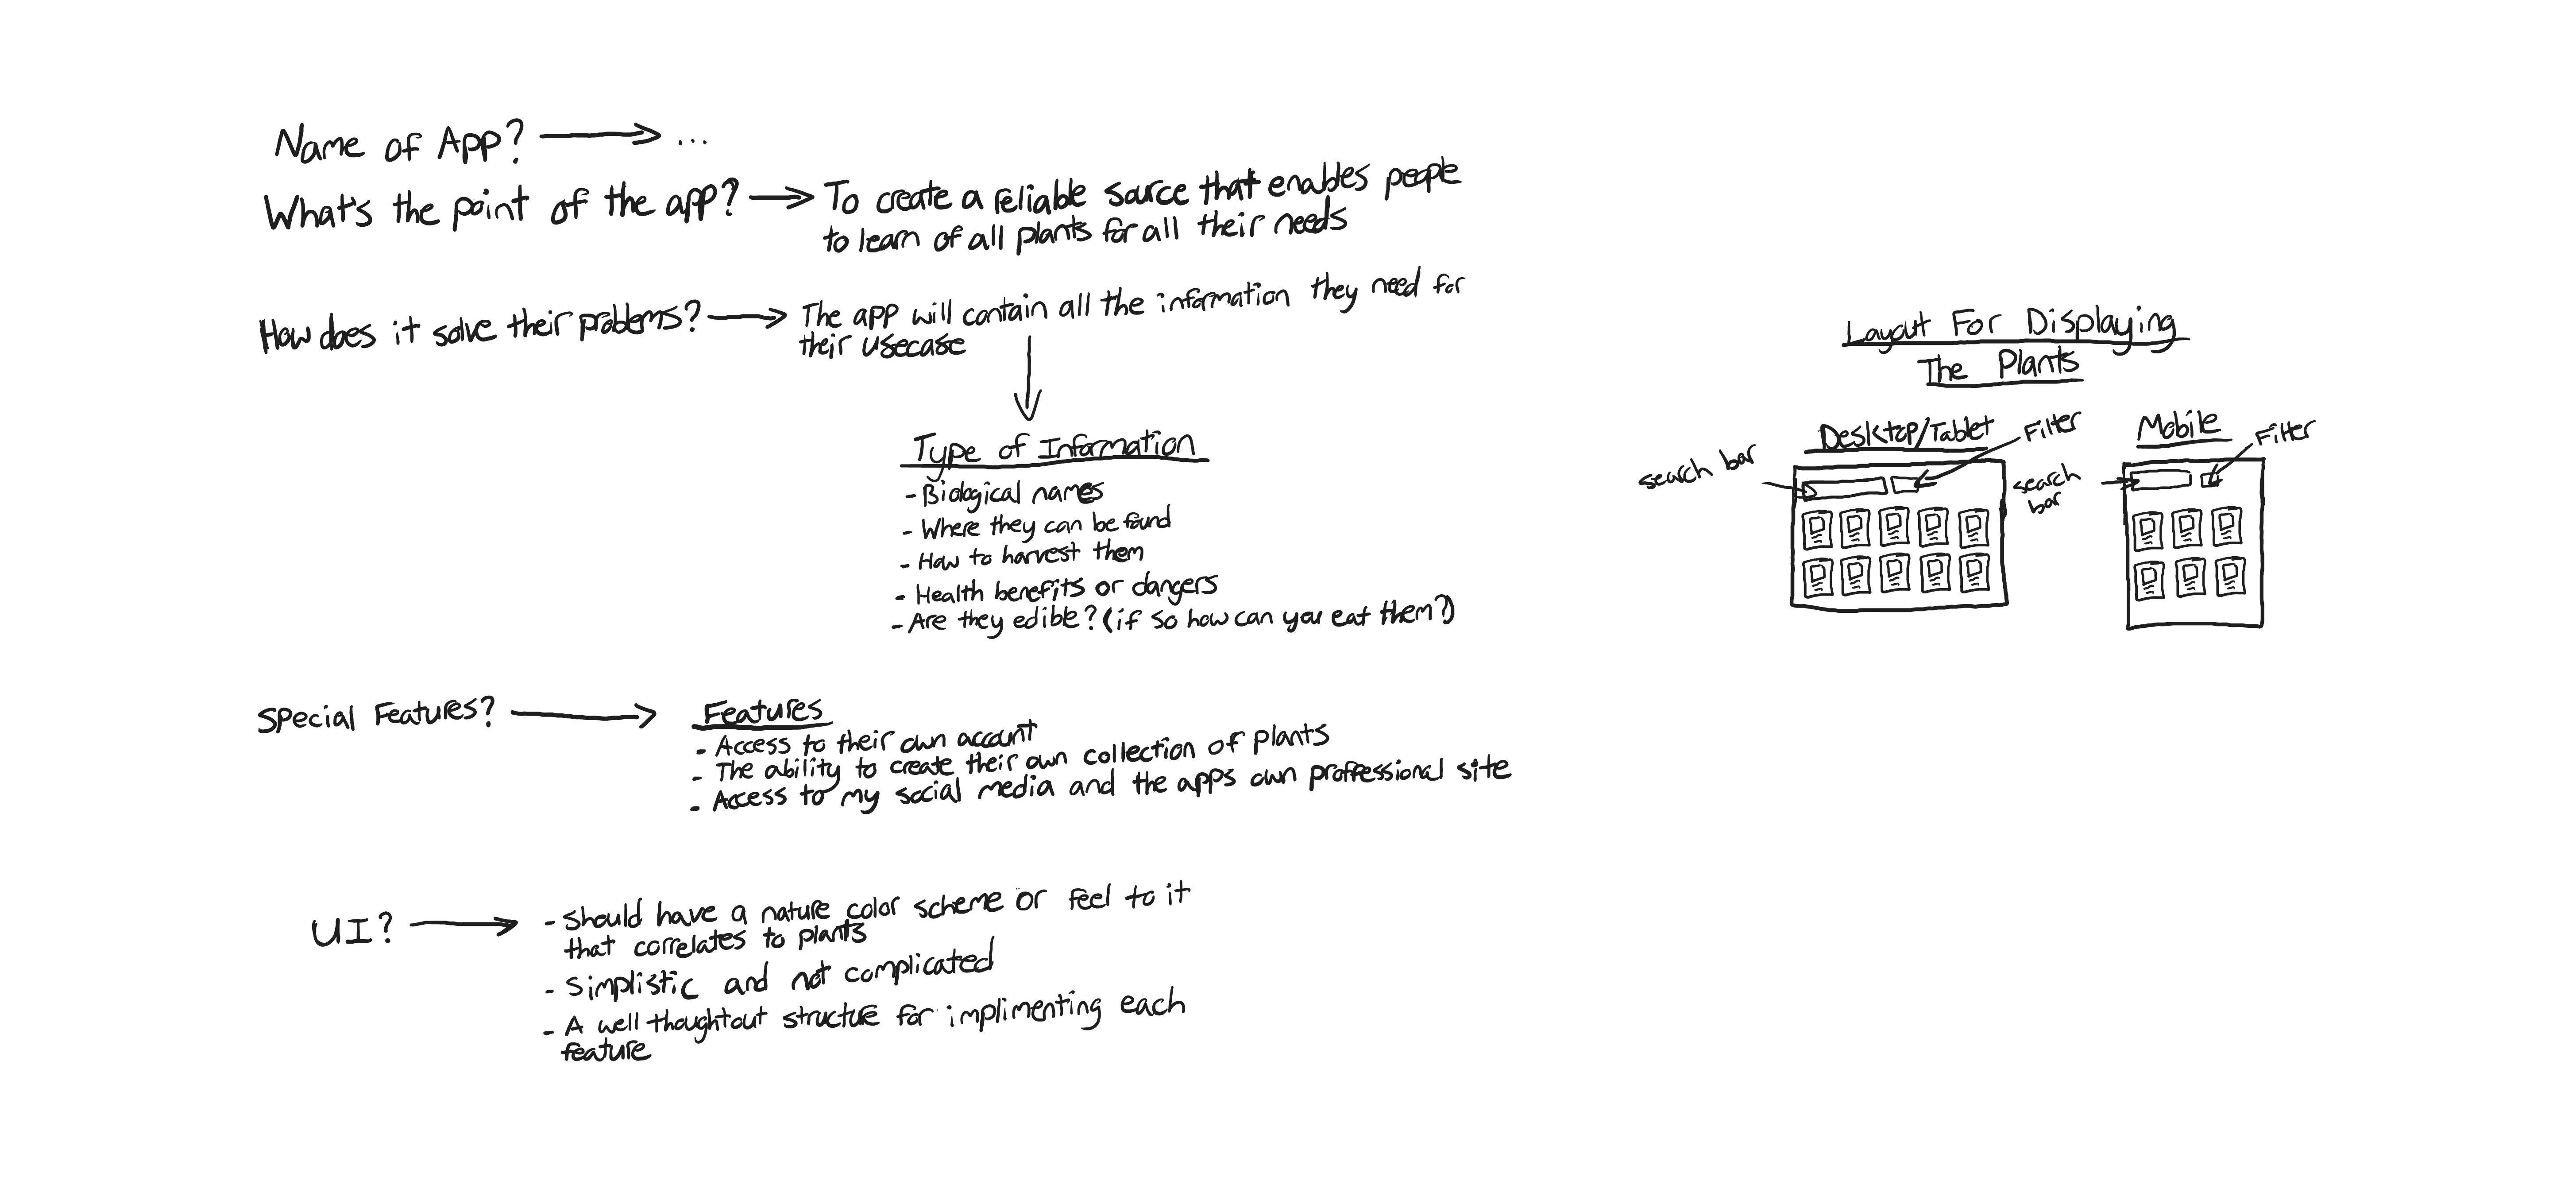 Name of App? → ...
What's the point of the app? → To create a reliable source that enables people
to learn of all plants for all their needs
How does it solve their problems? → The app will contain all the information they need for
their usecase
Type of Information
- Biological names
- Where they can be found
- How to harvest them
- Health benefits or dangers
- Are they edible? (if so how can you eat them?)
Special Features? → Features
- Access to their own account
- The ability to create their own collection of plants
- Access to my social media and the apps own proffessional site
UI? → - Should have a nature color scheme or feel to it
that correlates to plants
- Simplistic and not complicated
- A well thoughtout structure for implimenting each
feature
Layout For Displaying
The Plants
Desktop/Tablet
Filter
search bar
Mobile
Filter
search
bar